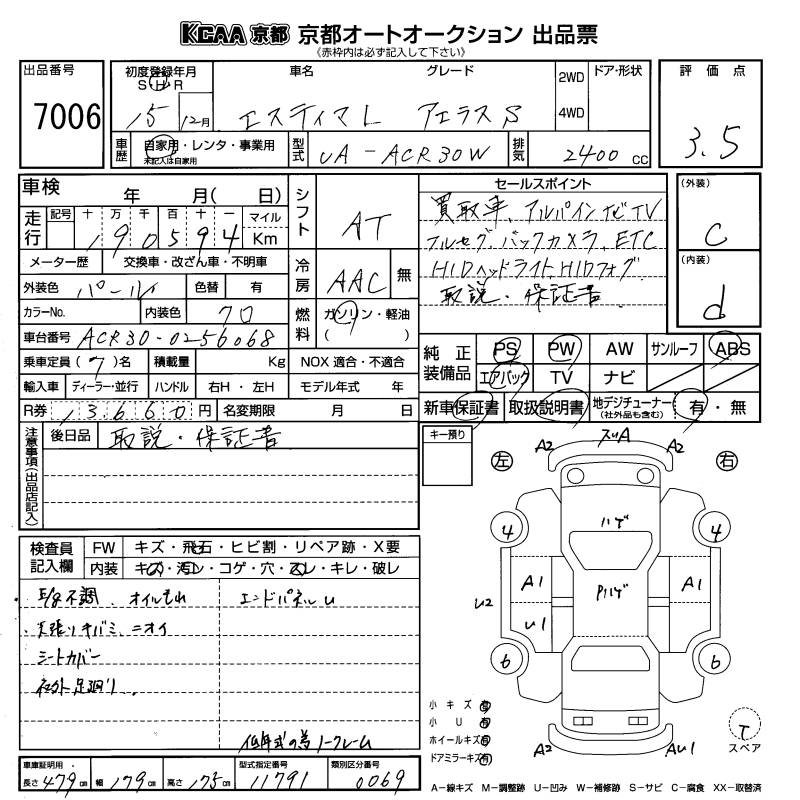 KCAA 京都 京都オートオークション 出品票
《赤枠内は必ず記入して下さい》
出品番号
7006
初度登録年月
S・H・R
15 12月
車名
グレード
エスティマL アエラスS
2WD
4WD
ドア・形状
評価点
3.5
車歴
自家用・レンタ・事業用
未記入は自家用
型式
UA-ACR30W
排気
2400 CC
車検
年 月( 日)
シフト
AT
走行
記号 十 万 千 百 十 一 マイル
190594 Km
メーター歴 交換車・改ざん車・不明車
冷房
AAC 無
外装色 パール 色替 有
カラーNo. 内装色 70
燃料
ガソリン・軽油
( )
車台番号 ACR30-0256068
乗車定員 (7)名 積載量 Kg NOX 適合・不適合
輸入車 ディーラー・並行 ハンドル 右H・左H モデル年式 年
R券 13660 円 名変期限 月 日
セールスポイント
買取車、アルパインナビTV
フルセグ、バックカメラ、ETC
HIDヘッドライト、HIDフォグ
取説・保証書
(外装)
C
(内装)
d
純正装備品
PS PW AW サンルーフ ABS
エアバック TV ナビ
新車保証書 取扱説明書 地デジチューナー
(社外品も含む) 有・無
注意事項(出品店記入)
後日品 取説・保証書
キー預り
左
右
A2 スリA A2
ハゲ
4 4
A1 Pハゲ A1
U2 U1
6 6
A2 AU1
T
スペア
検査員記入欄
FW キズ・飛石・ヒビ割・リペア跡・X要
内装 キズ・汚レ・コゲ・穴・スレ・キレ・破レ
E/g不調、オイルもれ エンドパネルU
天張リキバミ、ニオイ
シートカバー
社外足廻り
低年式の為ノークレーム
小キズ 有
小U 有
ホイールキズ 有
ドアミラーキズ 有
車庫証明用
長さ 479cm 幅 179cm 高さ 175cm
型式指定番号 11791
類別区分番号 0069
A－線キズ M－調整跡 U－凹み W－補修跡 S－サビ C－腐食 XX－取替済